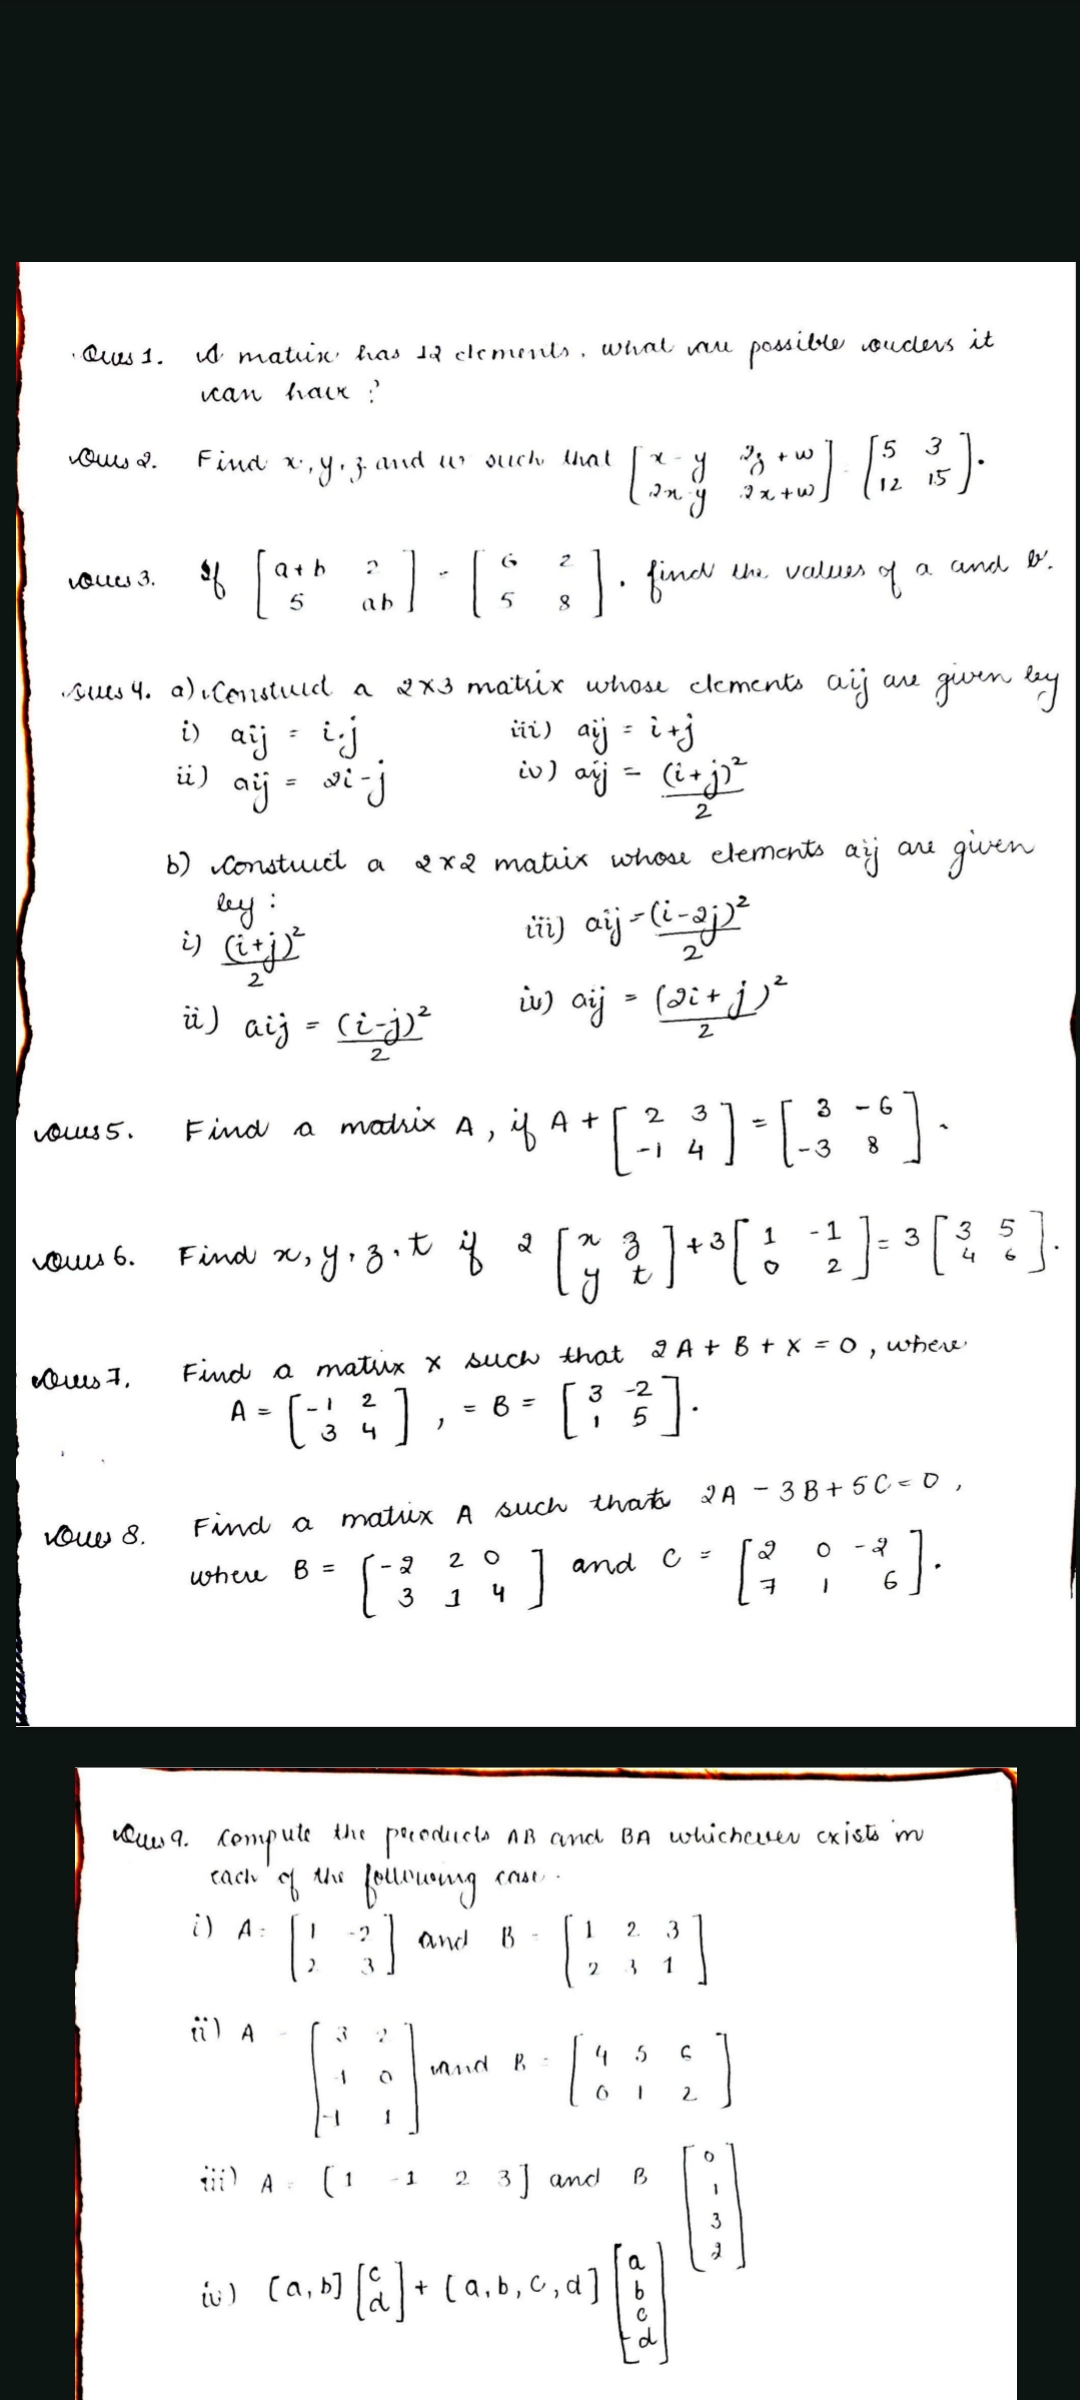 Ques 1. A matrix has 12 elements. What are possible orders it
can have ?
Ques 2. Find x, y, z and w such that [x-y 2z+w; 2x-y 2x+w] = [5 3; 12 15].
Ques 3. If [a+b 2; 5 ab] = [6 2; 5 8], find the values of a and b.
Ques 4. a) Construct a 2×3 matrix whose elements aij are given by
i) aij = i.j iii) aij = i+j
ii) aij = 2i-j iv) aij = (i+j)²/2
b) Construct a 2×2 matrix whose elements aij are given
by :
i) (i+j)²/2 iii) aij = (i-2j)²/2
ii) aij = (i-j)²/2 iv) aij = (2i+j)²/2
Ques 5. Find a matrix A, if A + [2 3; -1 4] = [3 -6; -3 8].
Ques 6. Find x, y, z, t if 2 [x z; y t] + 3 [1 -1; 0 2] = 3 [3 5; 4 6].
Ques 7. Find a matrix X such that 2A + B + X = 0, where
A = [-1 2; 3 4], = B = [3 -2; 1 5].
Ques 8. Find a matrix A such that 2A - 3B + 5C = 0,
where B = [-2 2 0; 3 1 4] and C = [2 0 -2; 7 1 6].
Ques 9. Compute the products AB and BA whichever exists in
each of the following case.
i) A = [1 -2; 2 3] and B = [1 2 3; 2 3 1]
ii) A = [3 2; -1 0; -1 1] and B = [4 5 6; 0 1 2]
iii) A = [1 -1 2 3] and B [0; 1; 3; 2]
iv) [a, b] [c; d] + [a, b, c, d] [a; b; c; d]